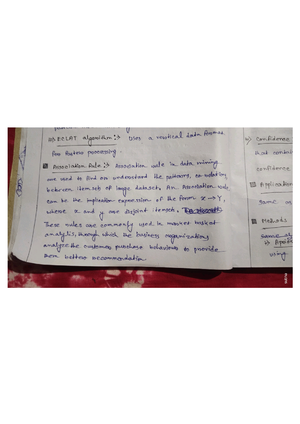 iii) ECLAT algorithm :→ Uses a vertical data format
for faster processing.
Association Rule :→ Association rule in data mining
are used to find an understand the patterns, co-relation
between item set of large dataset. An Association rule
can be the implication expression of the form X→Y,
where X and Y are disjoint itemset.
These rules are commonly used in market basket
analysis, through which the business organizations
analyze the customers purchase behaviours to provide
them betters recommendation
Confidence
that
confidence
Application
Same as
Methods
i) Aprio
using